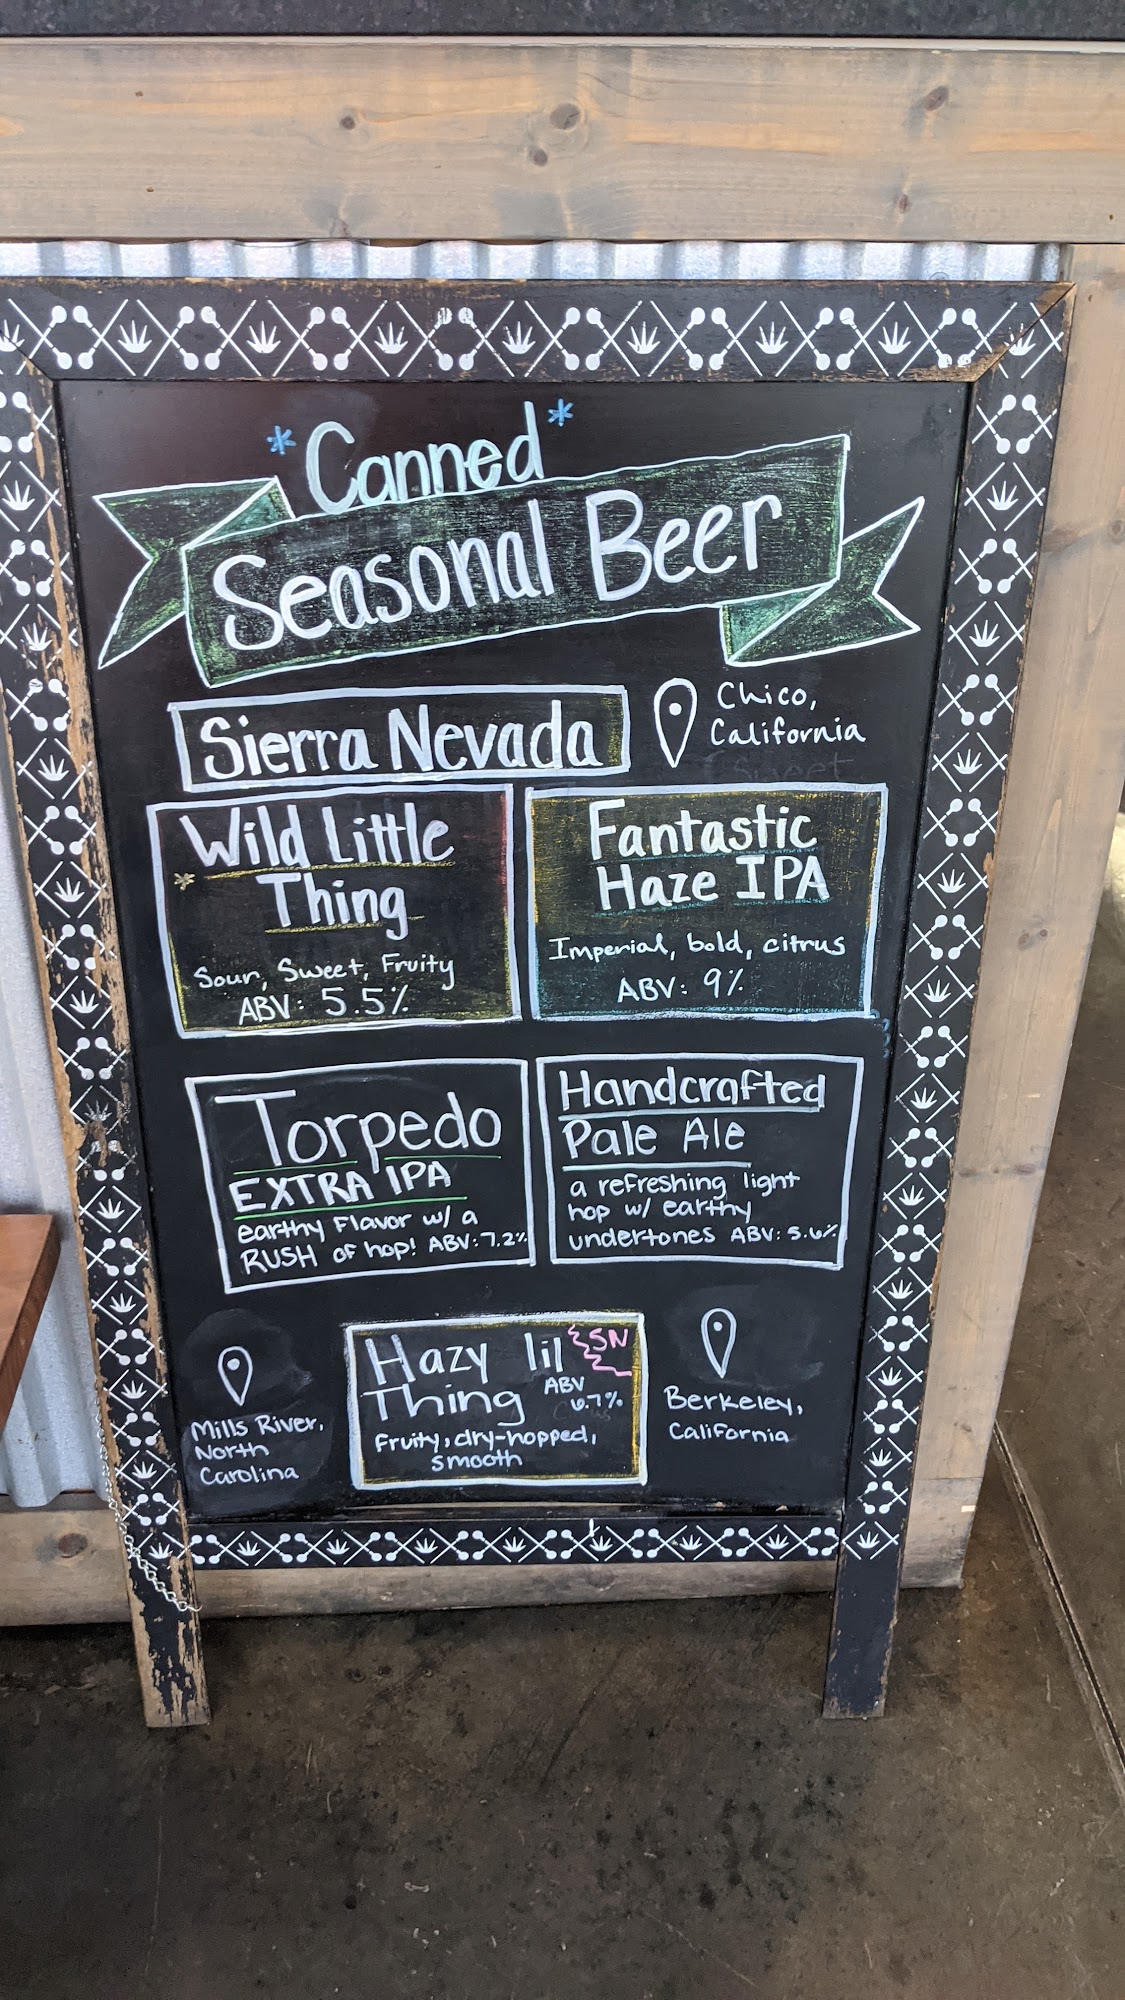 *Canned*
Seasonal Beer
Sierra Nevada
Chico,
California
Sweet
Wild Little
* Thing
Sour, Sweet, Fruity
ABV: 5.5%
Fantastic
Haze IPA
Imperial, bold, citrus
ABV: 9%
Torpedo
EXTRA IPA
earthy flavor w/ a
RUSH of hop! ABV: 7.2%
Handcrafted
Pale Ale
a refreshing light
hop w/ earthy
undertones ABV: 5.6%
Mills River,
North
Carolina
Hazy lil
Thing
SN
ABV
6.7%
Fruity, dry-hopped,
smooth
Berkeley,
California